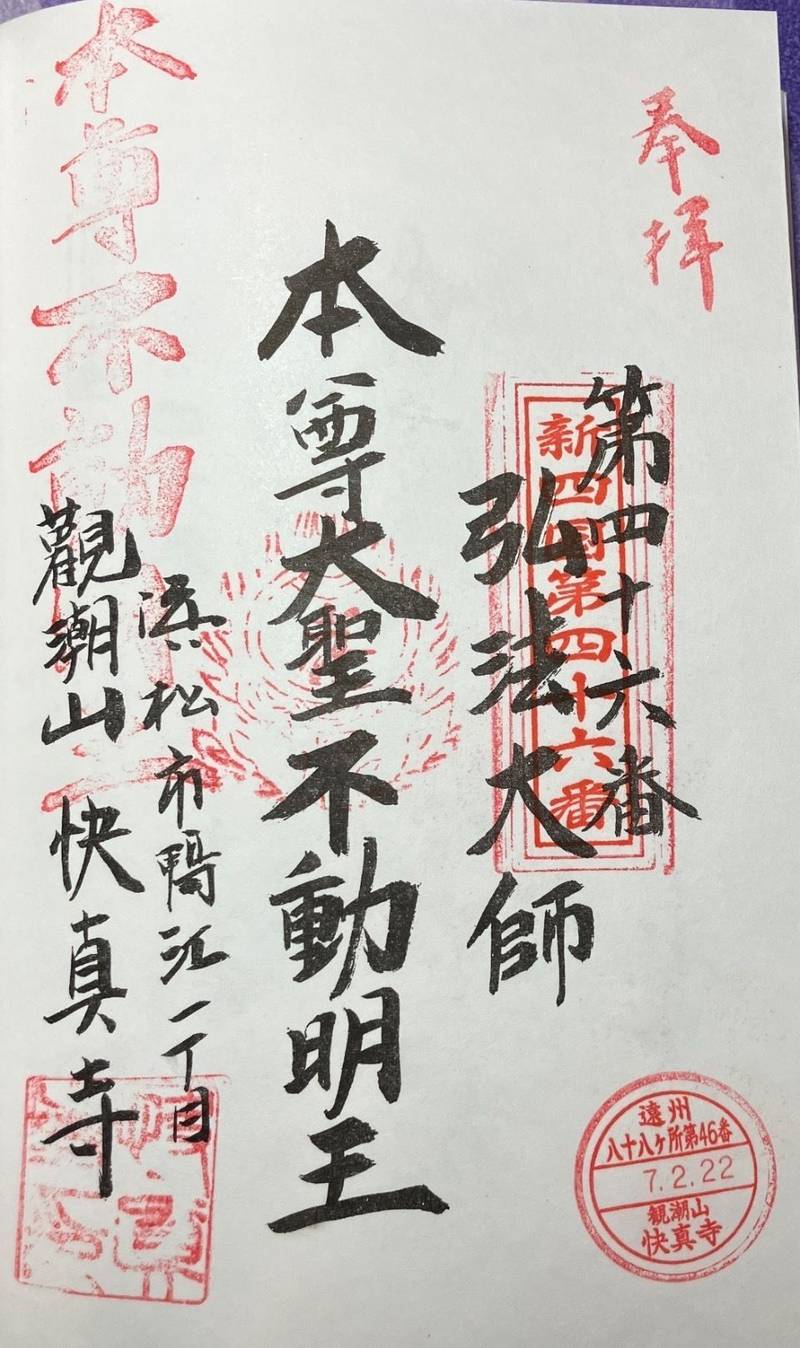 奉拝
第四十六番
新四国第四十六番
弘法大師
本尊大聖不動明王
浜松市鴨江一丁目
觀潮山 快真寺
本尊不動
遠州
八十八ヶ所第46番
7.2.22
観潮山
快真寺